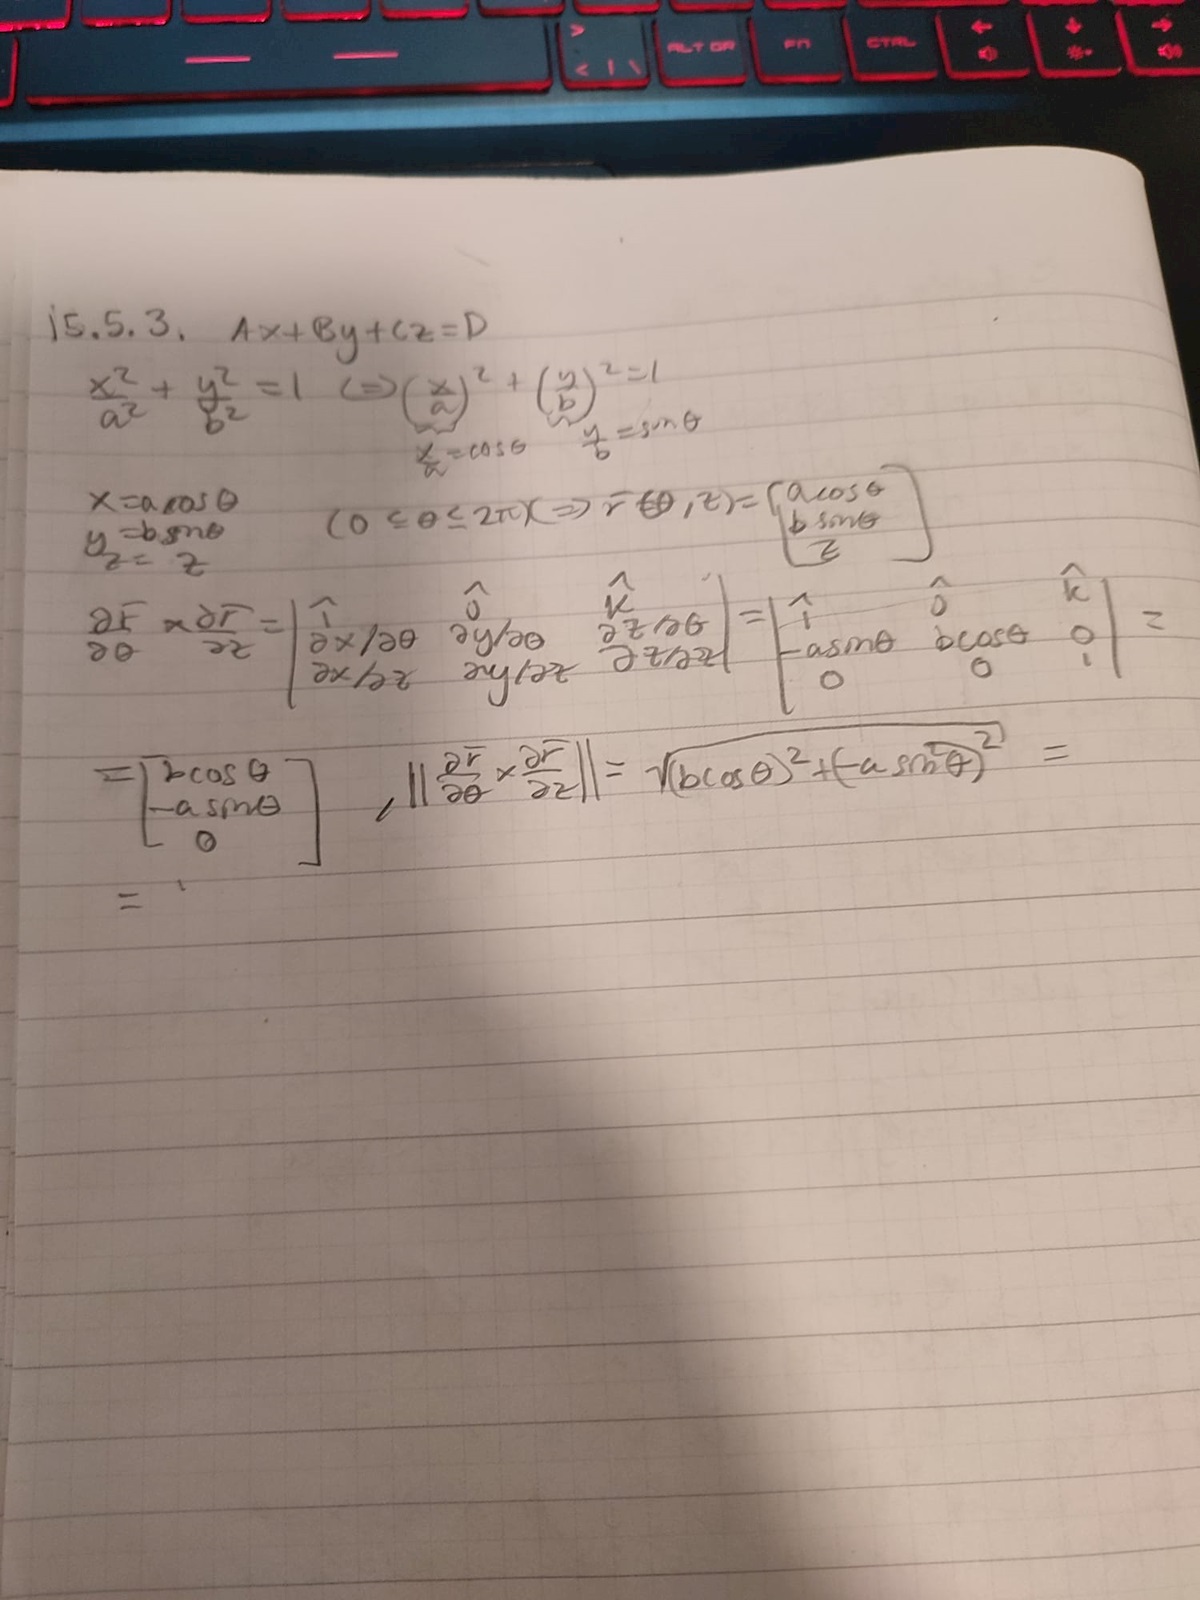 > < | \ ALT GR FN CTRL
15.5.3. Ax+By+Cz=D
x²/a² + y²/b² = 1 (=) (x/a)² + (y/b)² = 1
x/a = cosθ y/b = sinθ
x = a cosθ
y = b sinθ (0 ≤ θ ≤ 2π) (=) r̄(θ, z) = [a cosθ b sinθ z]
z = z
∂r̄/∂θ × ∂r̄/∂z = | î ĵ k̂ ∂x/∂θ ∂y/∂θ ∂z/∂θ ∂x/∂z ∂y/∂z ∂z/∂z | = | î ĵ k̂ -a sinθ b cosθ 0 0 0 1 | =
= [b cosθ -a sinθ 0] , ||∂r̄/∂θ × ∂r̄/∂z|| = √(b cosθ)² + (-a sin²θ)² =
=